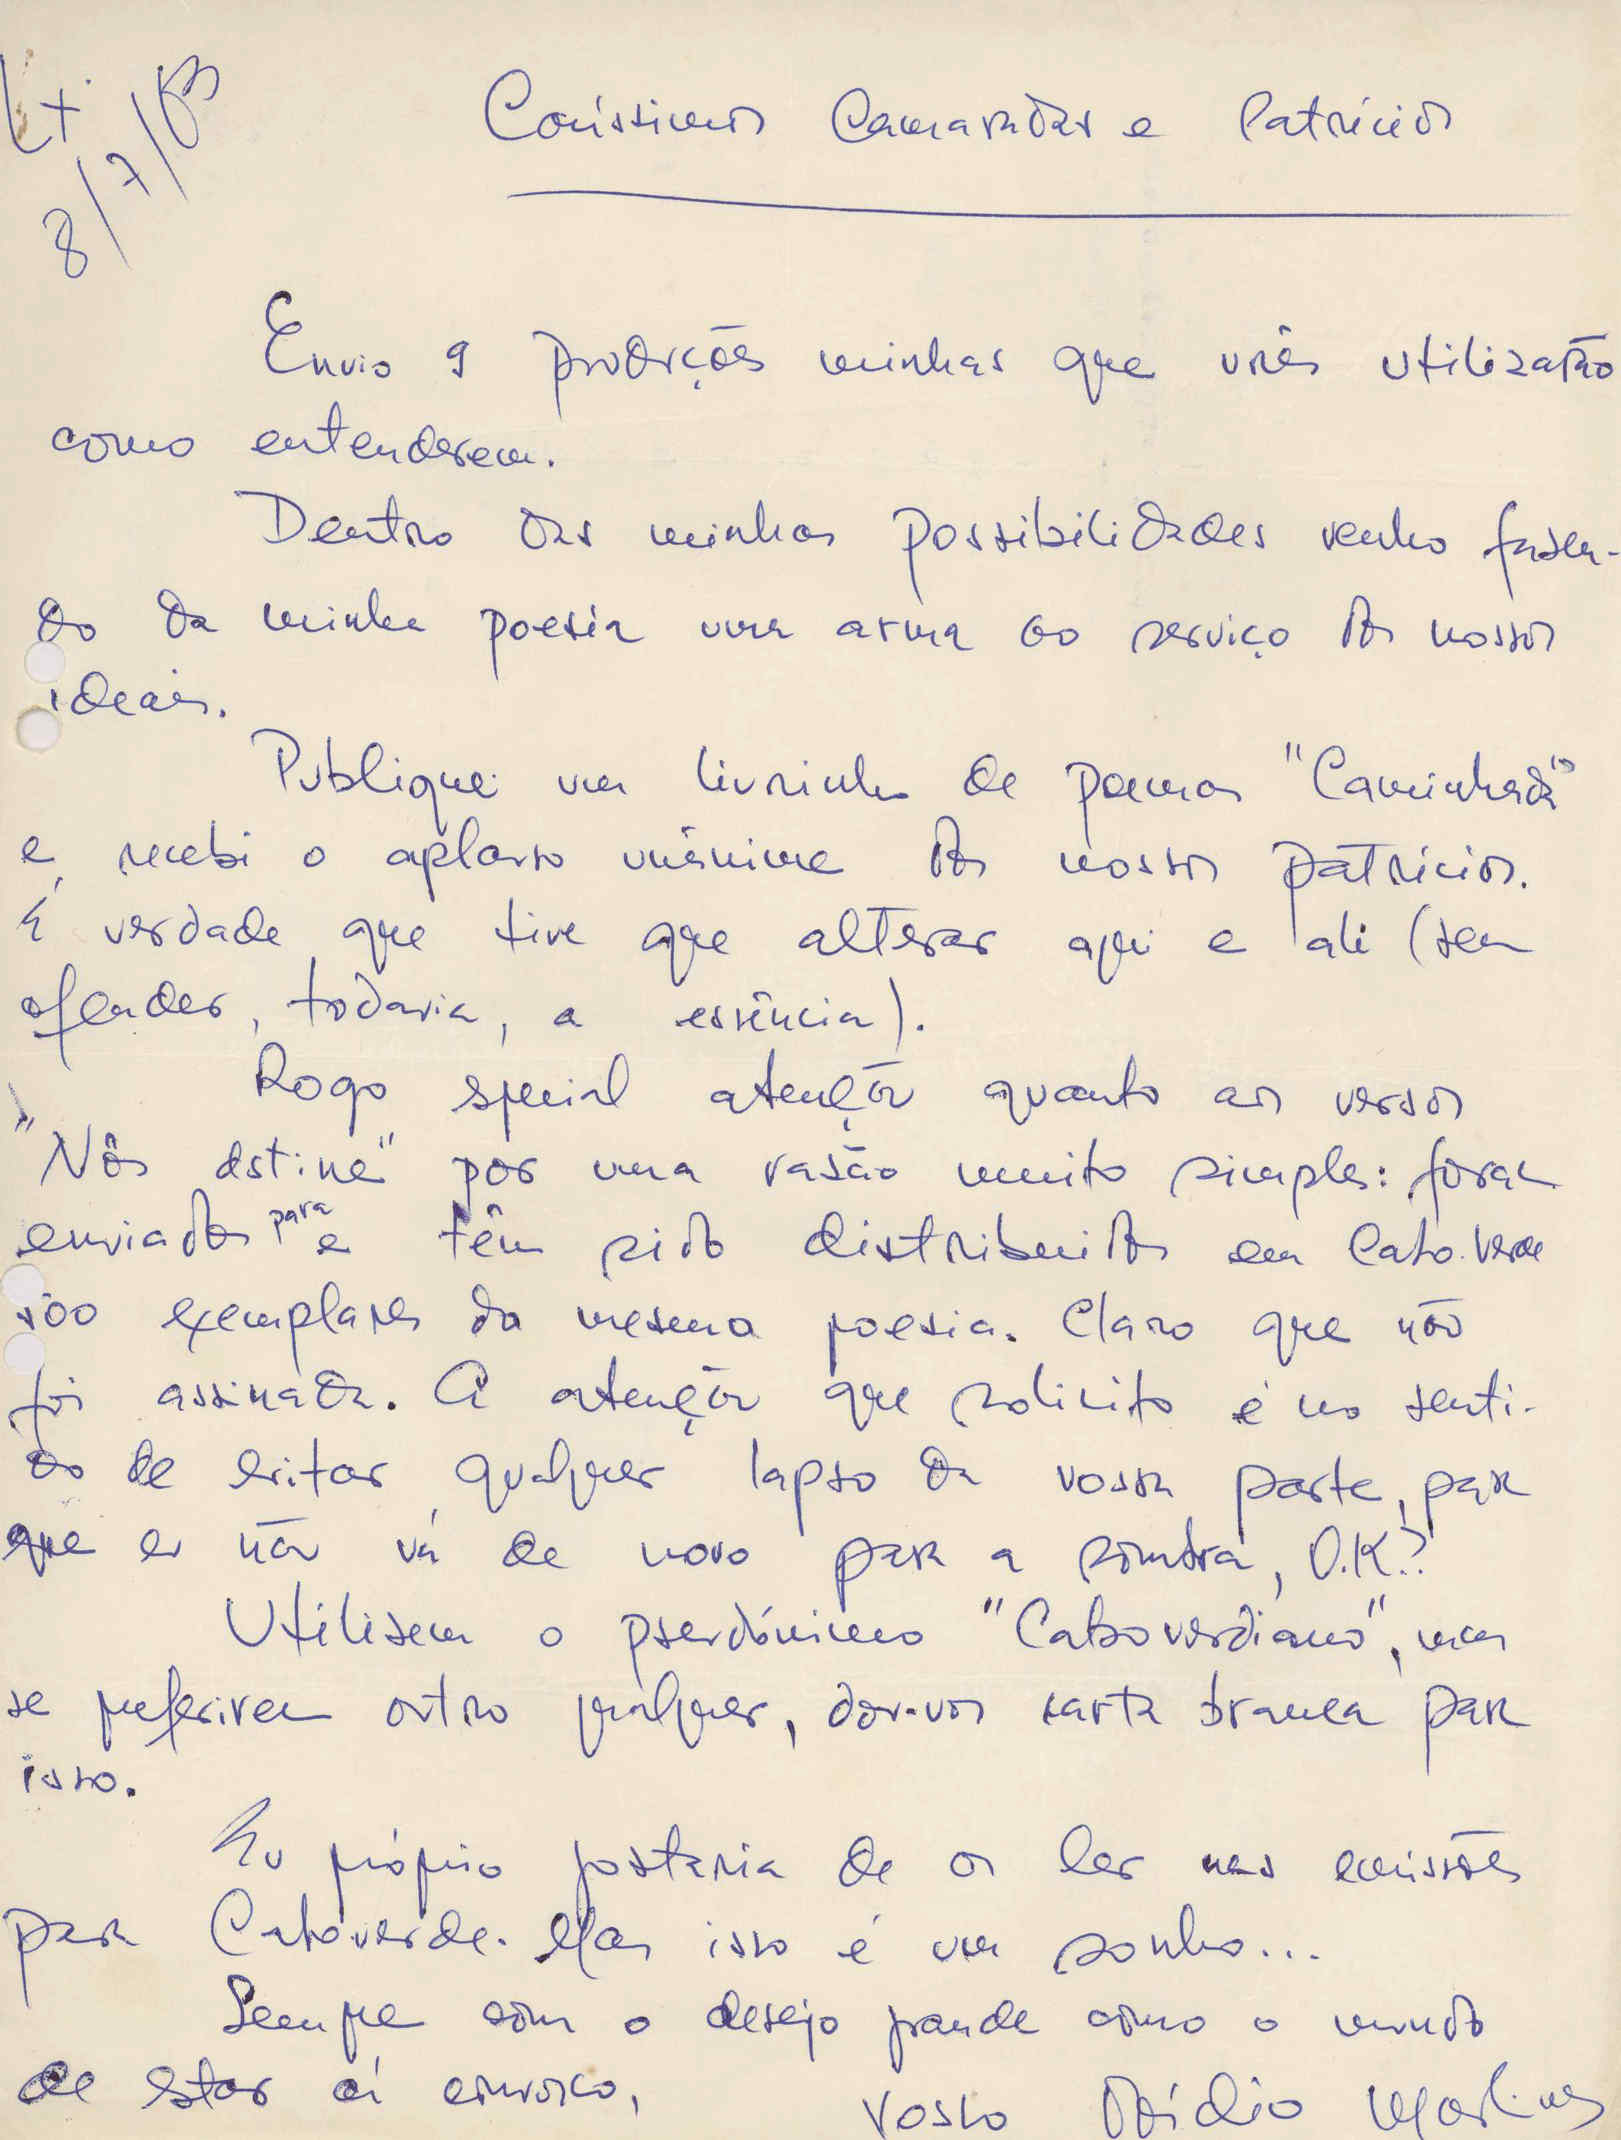 Lx.
8/7/63
Caríssimos Camaradas e Patrícios
Envio 9 produções minhas que vocês utilizarão
como entenderem.
Dentro das minhas possibilidades venho fazen-
do da minha poesia uma arma ao serviço dos nossos
ideais.
Publiquei um livrinho de poemas "Caminhada"
e recebi o aplauso unânime dos nossos patrícios.
É verdade que tive que alterar aqui e ali (sem
ofender, todavia, a essência).
Rogo special atenção quanto aos versos
"Nôs dstine" por uma razão muito simples: foram
enviados para e têm sido distribuidos em Cabo-Verde
exemplares da mesma poesia. Claro que não
foi assinada. A atenção que solicito é no senti-
do de evitar qualquer lapso da vossa parte, para
que eu não vá de novo para a sombra, O.K.?
Utilizem o pseudónimo "Caboverdiano", mas
se preferirem outro qualquer, dou-vos carta branca para
isso.
Eu próprio gostaria de os ler nas emissões
para Cabo-verde. Mas isso é um sonho...
Sempre com o desejo grande como o mundo
de estar aí convosco,
Vosso Ovídio Martins